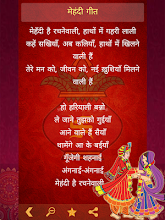 मेहंदी गीत
मेहँदी है रचनेवाली, हाथों में गहरी लाली
कहें सखियाँ, अब कलियाँ, हाथों में खिलने
वाली हैं
तेरे मन को, जीवन को, नई खुशियाँ मिलने
वाली हैं
हो हरियाली बन्नो
ले जाने तुझको गुइयाँ
आने वाले हैं सैयाँ
थामेंगे आ के बईयाँ
गूँजेगी शहनाई
अंगनाई-अंगनाई
मेहंदी है रचनेवाली